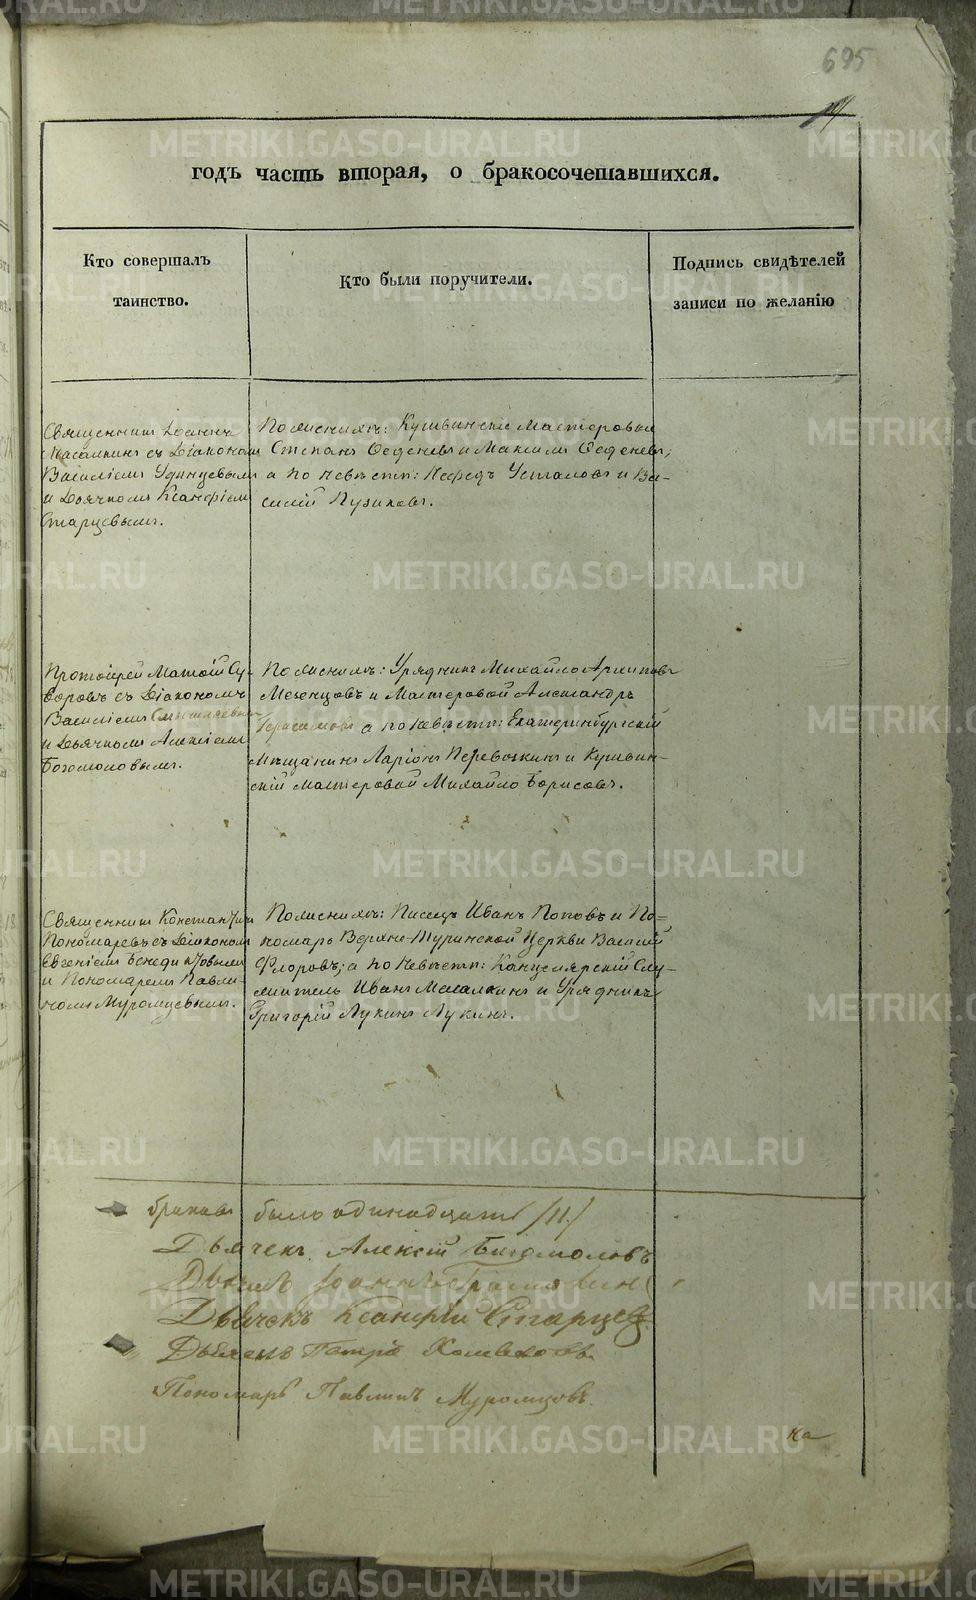 695
годъ часть вторая, о бракосочетавшихся.
Кто совершалъ
таинство.
Кто были поручители.
Подпись свидѣтелей
записи по желанію
Священникъ Іоаннъ
съ Діакономъ
Василіемъ Удинцевымъ
и Дьячкомъ Ксанфіемъ
Старцевымъ.
По женихѣ: Кушвинскіе Мастеровые
Степанъ и Максимъ
а по невѣстѣ: Нефедъ Усталовъ и Ва-
силій Пузиковъ.
Протоіерей Матѳій Су-
воровъ съ Діакономъ
Василіемъ
и Дьячкомъ Алексіемъ
Богомоловымъ.
По женихѣ: Урядникъ Михайло Архиповъ
Мезенцовъ и Мастеровой Александръ
Герасимовъ а по невѣстѣ: Екатеринбургскій
Мѣщанинъ Ларіонъ Перевозкинъ и Кушвин-
скій мастеровой Михайло Борисовъ.
Священникъ Константинъ
Пономаревъ съ Діакономъ
Евгеніемъ
и Пономаремъ Павли-
номъ Муромцевымъ.
По женихѣ: Писецъ Иванъ Поповъ и По=
номарь Верхне-Туринской Церкви Василій
Флоровъ; а по невѣстѣ: Канцелярскій Слу-
житель Иванъ и Урядникъ
Григорій Лукинъ Лукинъ.
браковъ было одинадцать /11./
Дьячекъ Алексій Богомоловъ
Дьячекъ Ксанфій Старцевъ
Дьячекъ Петръ
Пономарь Павлинъ Муромцовъ.
на
METRIKI.GASO-URAL.RU